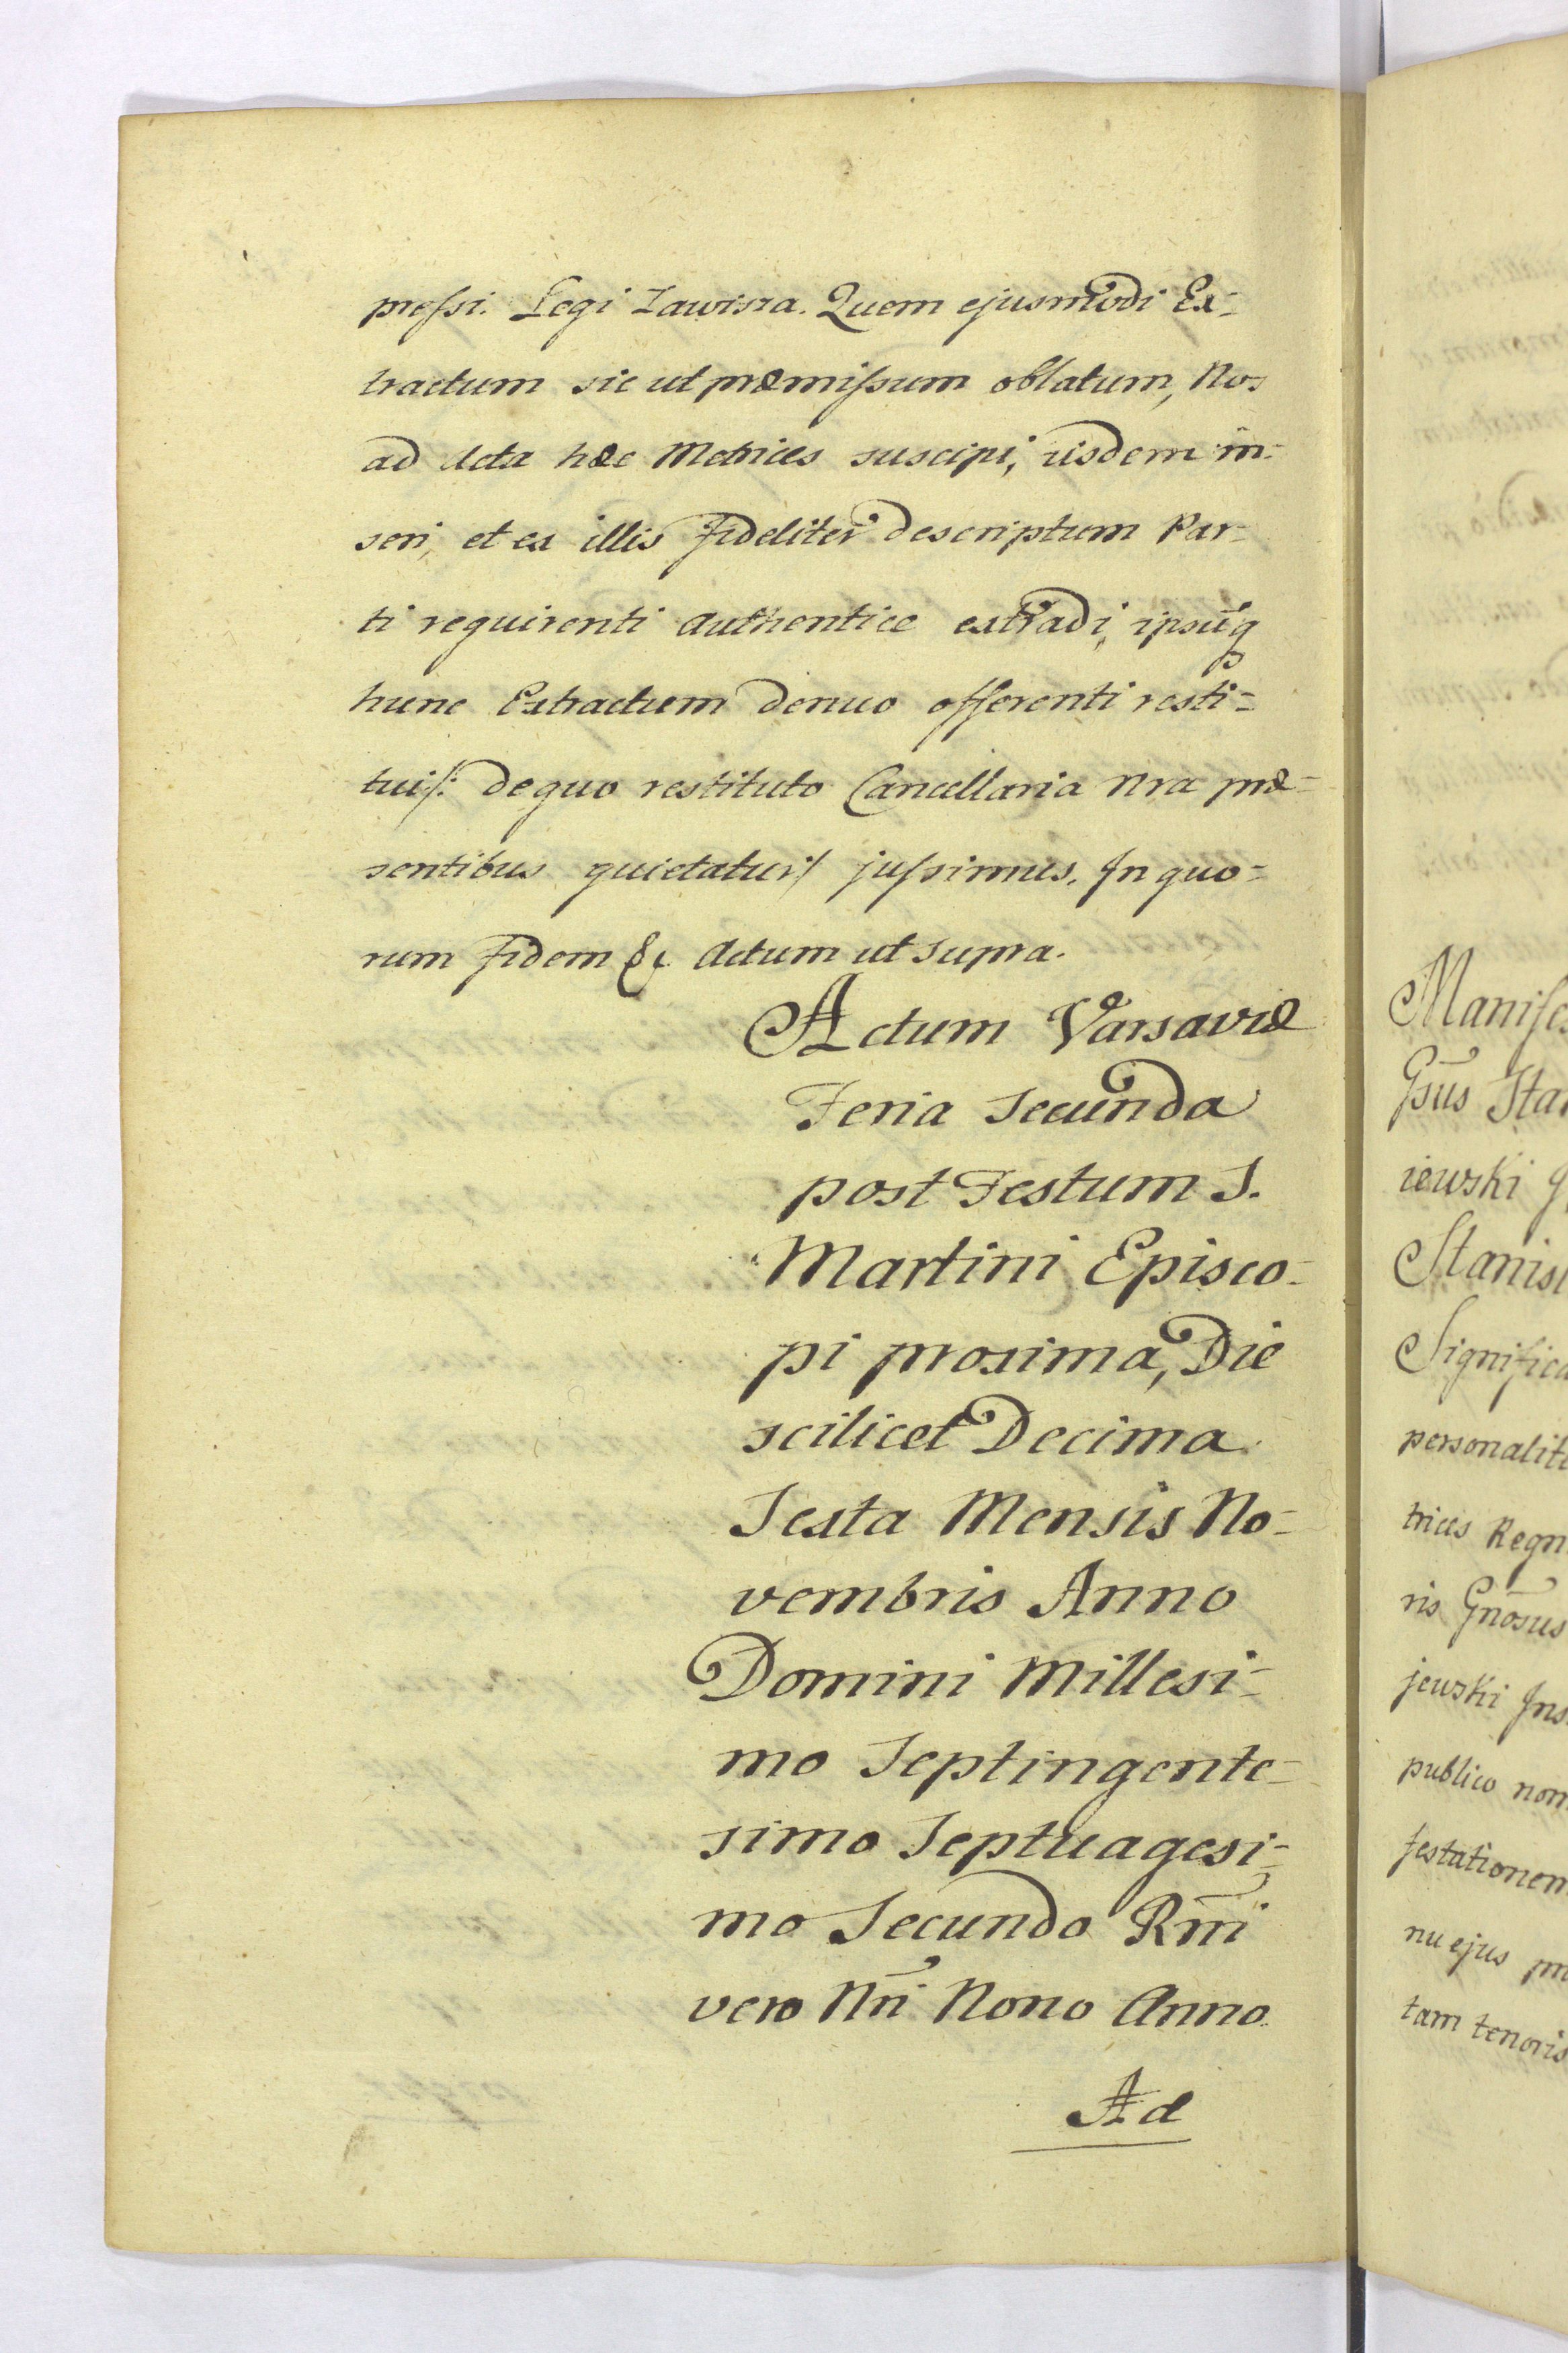 prefsi. Legi Zawisza. Quem ejusmodi Ex-
tractum sic ut præmifsum oblatum, Nos
ad Acta hæc Metrices suscipi, iisdem in-
seri, et ex illis fideliter descriptum Par-
ti requirenti authentice extradi, ipsūq
hunc Extractum denuo offerenti resti-
tui/: de quo restituto Cancellaria Nra præ-
sentibus quietatur:/ jufsimus. In quo-
rum fidem &c. Actum ut supra.
Actum Varsaviæ
Feria Secunda
post Festum S.
Martini Episco-
pi proxima, Die
scilicet Decima
Sexta Mensis No-
vembris Anno
Domini Millesi-
mo Septingente-
simo Septuagesi-
mo Secundo Rñi
vero Nñi Nono Anno.
Ad
Manifes
Gsus Sta
iewski
Stanisl
Significa
personalite
trices Regn
ris Gnosus
jewski Ins
publico nom
festationem
nu ejus
tam tenoris